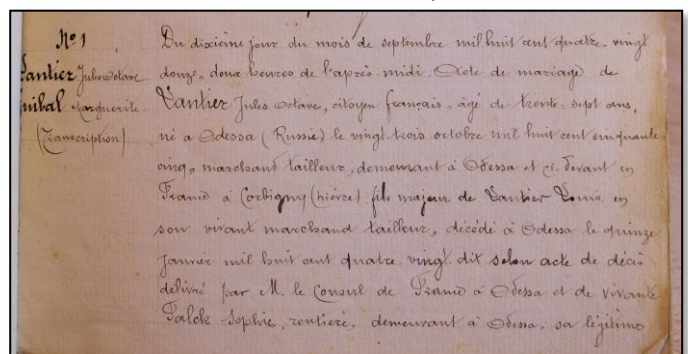 N° 1
Vantier Jules Octave
Anibal Marguerite
(Transcription)
Du dixième jour du mois de septembre mil huit cent quatre-vingt
douze, deux heures de l'après-midi. Acte de mariage de
Vantier Jules Octave, citoyen français, âgé de trente-sept ans,
né à Odessa (Russie) le vingt-trois octobre mil huit cent cinquante
cinq, marchand tailleur, demeurant à Odessa et ci-devant en
France à Corbigny (Nièvre) fils majeur de Vantier Louis, en
son vivant marchand tailleur, décédé à Odessa le quinze
Janvier mil huit cent quatre-vingt dix selon acte de décès
délivré par M. le Consul de France à Odessa et de vivante
Falck Sophie, rentière, demeurant à Odessa, sa légitime